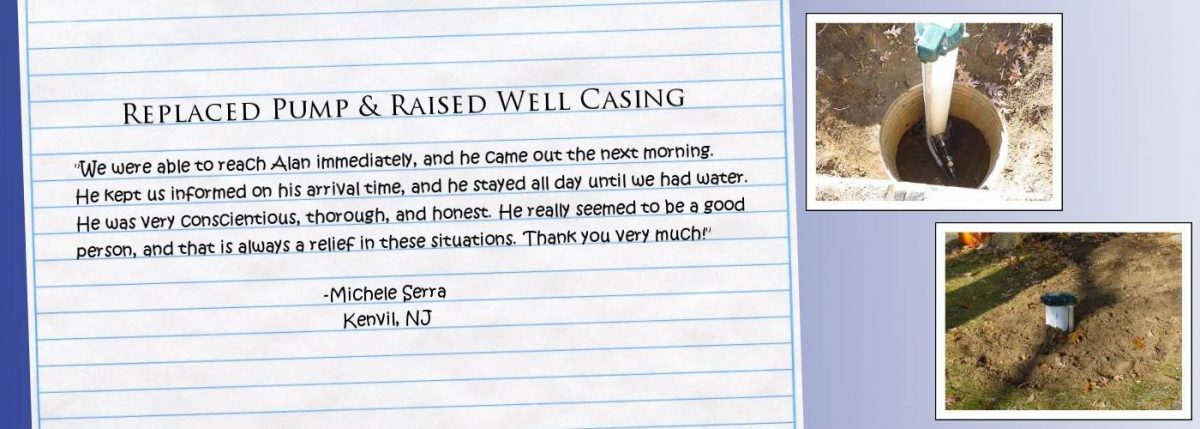 Replaced Pump & Raised Well Casing
"We were able to reach Alan immediately, and he came out the next morning.
He kept us informed on his arrival time, and he stayed all day until we had water.
He was very conscientious, thorough, and honest. He really seemed to be a good
person, and that is always a relief in these situations. Thank you very much!"
-Michele Serra
Kenvil, NJ